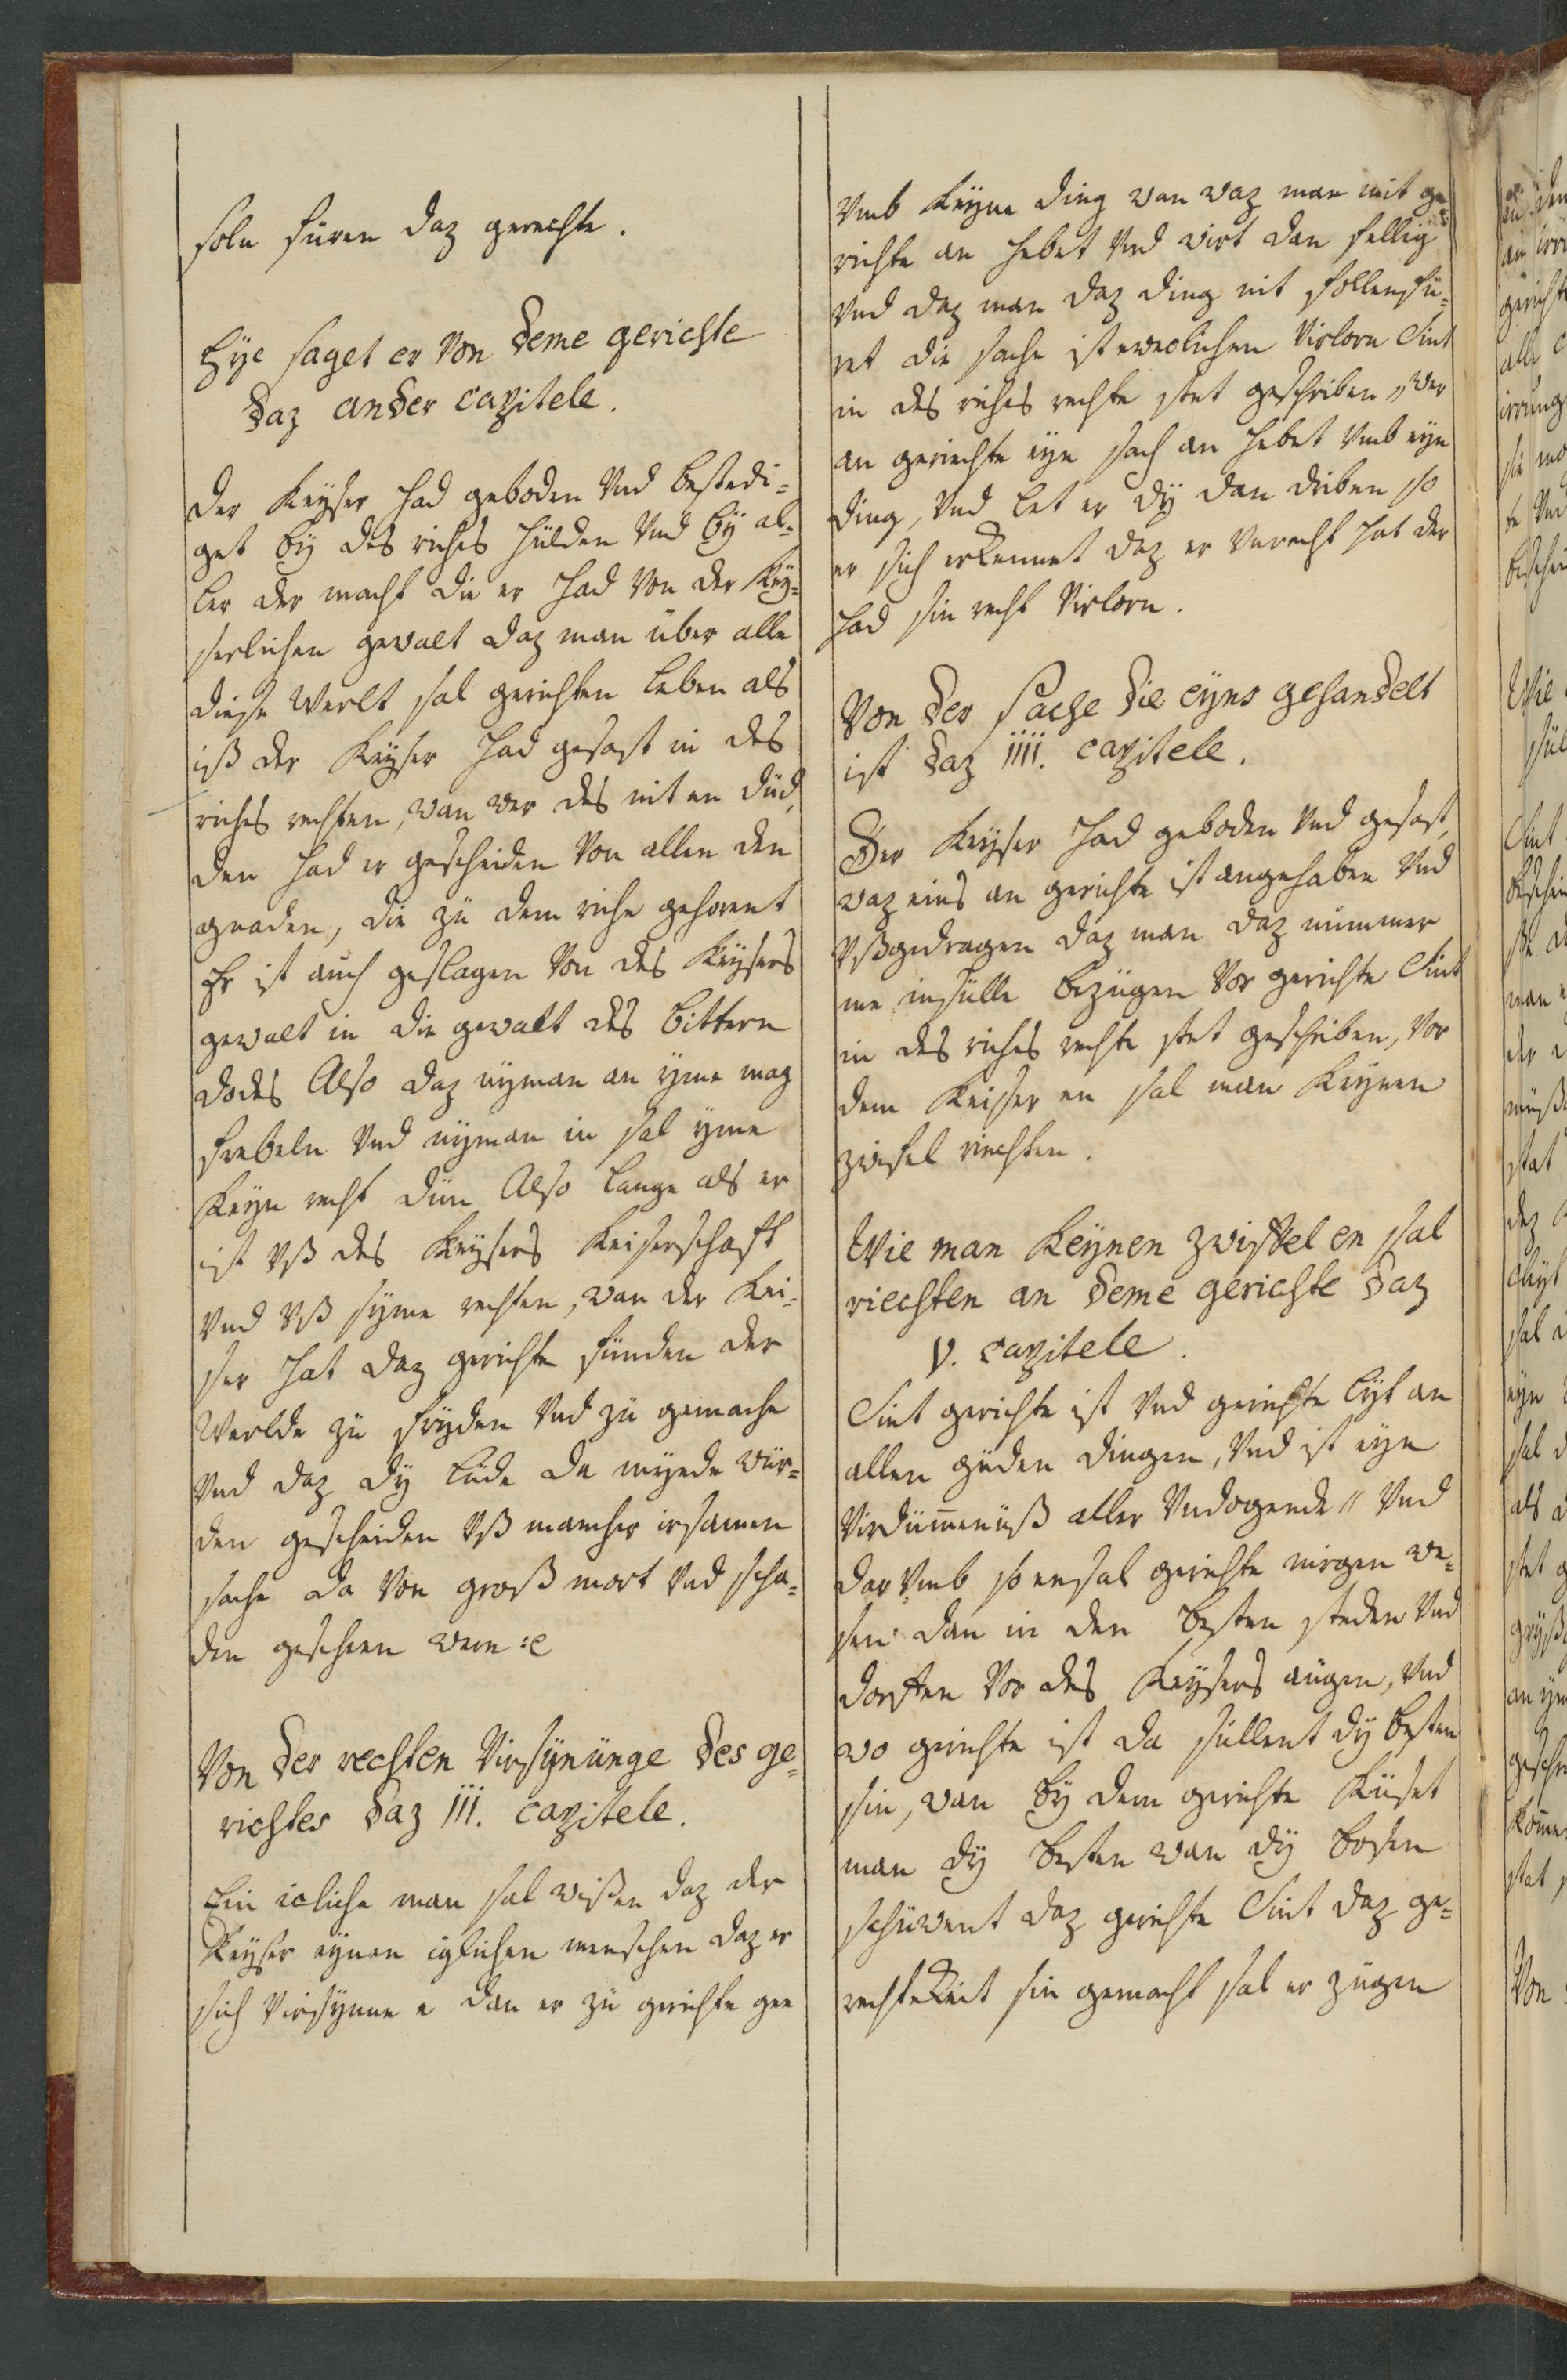 soln füren daz gerechte.
Hye saget er Von deme gerichte
daz ander capitele.
Der Keyser had geboden Vnd bestedi-
get bÿ des riches hülden Vnd bÿ al-
ler der macht die er had Von der Keÿ-
serlichen gewalt daz man über alle
diese Werlt sal gerichten leben als
iß der Keyser had gesast in des
riches rechten, wan wer des nit en düd,
den had er gescheiden Von allen den
gnaden, die zü dem riche gehorent
Er ist auch geslagen Von des Keysers
gewalt in die gewalt des bittern
dodes Also daz nÿman an ÿme mag
frebeln Vnd nÿman in sal ÿme
Keyn recht dün Also lange als er
ist Vß des Keysers Keiserschafft
Vnd Vß sÿme rechten, wan der Kei-
ser hat daz gerichte fünden der
Werlde zü frÿden Vnd zü gemache
Vnd daz dÿ lüde da mÿede wür-
den gescheiden Vß mancher irsamen
sache da Von groß mort Vnd scha-
den gescheen were :e
Von der rechten Virsÿnünge des ge-
richtes daz III. capitele.
Ein icliche man sal wißen daz der
Keyser eÿnen iglichen menschen daz er
sich Virsÿnne e dan er zü gerichte gee
Vmb Keyne ding wan waz man mit ge-
richte an hebet Vnd wirt dan fellig
Vnd daz man daz ding nit follenfü-
ret die sache ist eweclichen Virlorn Sint
in des riches rechte stet geschriben, wer
an geriechte eyn sach an hebet Vmb eyn
ding, Vnd let er dÿ dan driben so
er sich erkennet daz er Vnrecht hat der
had sin recht Virlorn.
Von der sache die eyns gehandelt
ist daz IIII. capitele.
Der Keyser had geboden Vnd gesast,
waz eins an gerichte ist angehaben Vnd
Vßgedragen daz man daz nümmer
me insülle bezügen Vor gerichte Sint
in des riches rechte stet geschriben, Vor
dem Keisser en sal man Keynen
zwifel riechten.
Wie man Keynen zwiffel en sal
riechten an deme gerichte daz
V. capitele.
Sint gerichte ist Vnd gerichte lÿt an
allen güden dingen, Vnd ist eyn
Virdümenüß aller Vndogende // Vnd
dar Vmb so ensal gerichte nirgen we-
sen dan in den besten steden Vnd
dorffen Vor des Keysers aügen, Vnd
wo gerichte ist da süllent dÿ besten
sin, wan bÿ dem gerichte Küset
man dÿ besten wan dÿ bosen
schüwent daz gerichte Sint daz ge-
rechtekeit sin gemacht sal er zügen